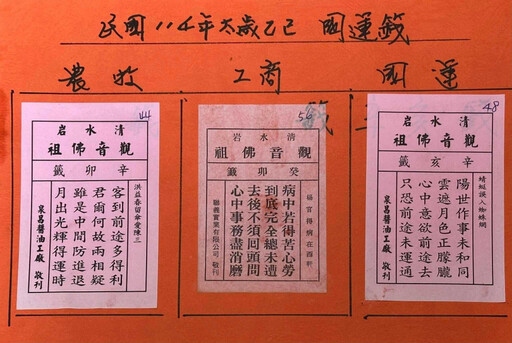 民國114年太歲乙巳 國運籤
農收
工商
國運
44
清水岩
觀音佛祖
辛卯籤
洪益春留傘愛陳三
客到前途多得利
君爾何故兩相疑
雖是中間防進退
月出光輝得運時
泉昌醬油工廠 敬刊
56
清水岩
觀音佛祖
癸卯籤
得病在西軒
病中若得苦心勞
到底完全總未遭
去後不須回頭問
心中事務盡消磨
聯義實業有限公司 敬刊
48
清水岩
觀音佛祖
辛亥籤
蜻蜓誤入蜘蛛網
陽世作事未和同
雲遮月色正朦朧
心中意欲前途去
只恐前途未運通
泉昌醬油工廠 敬刊